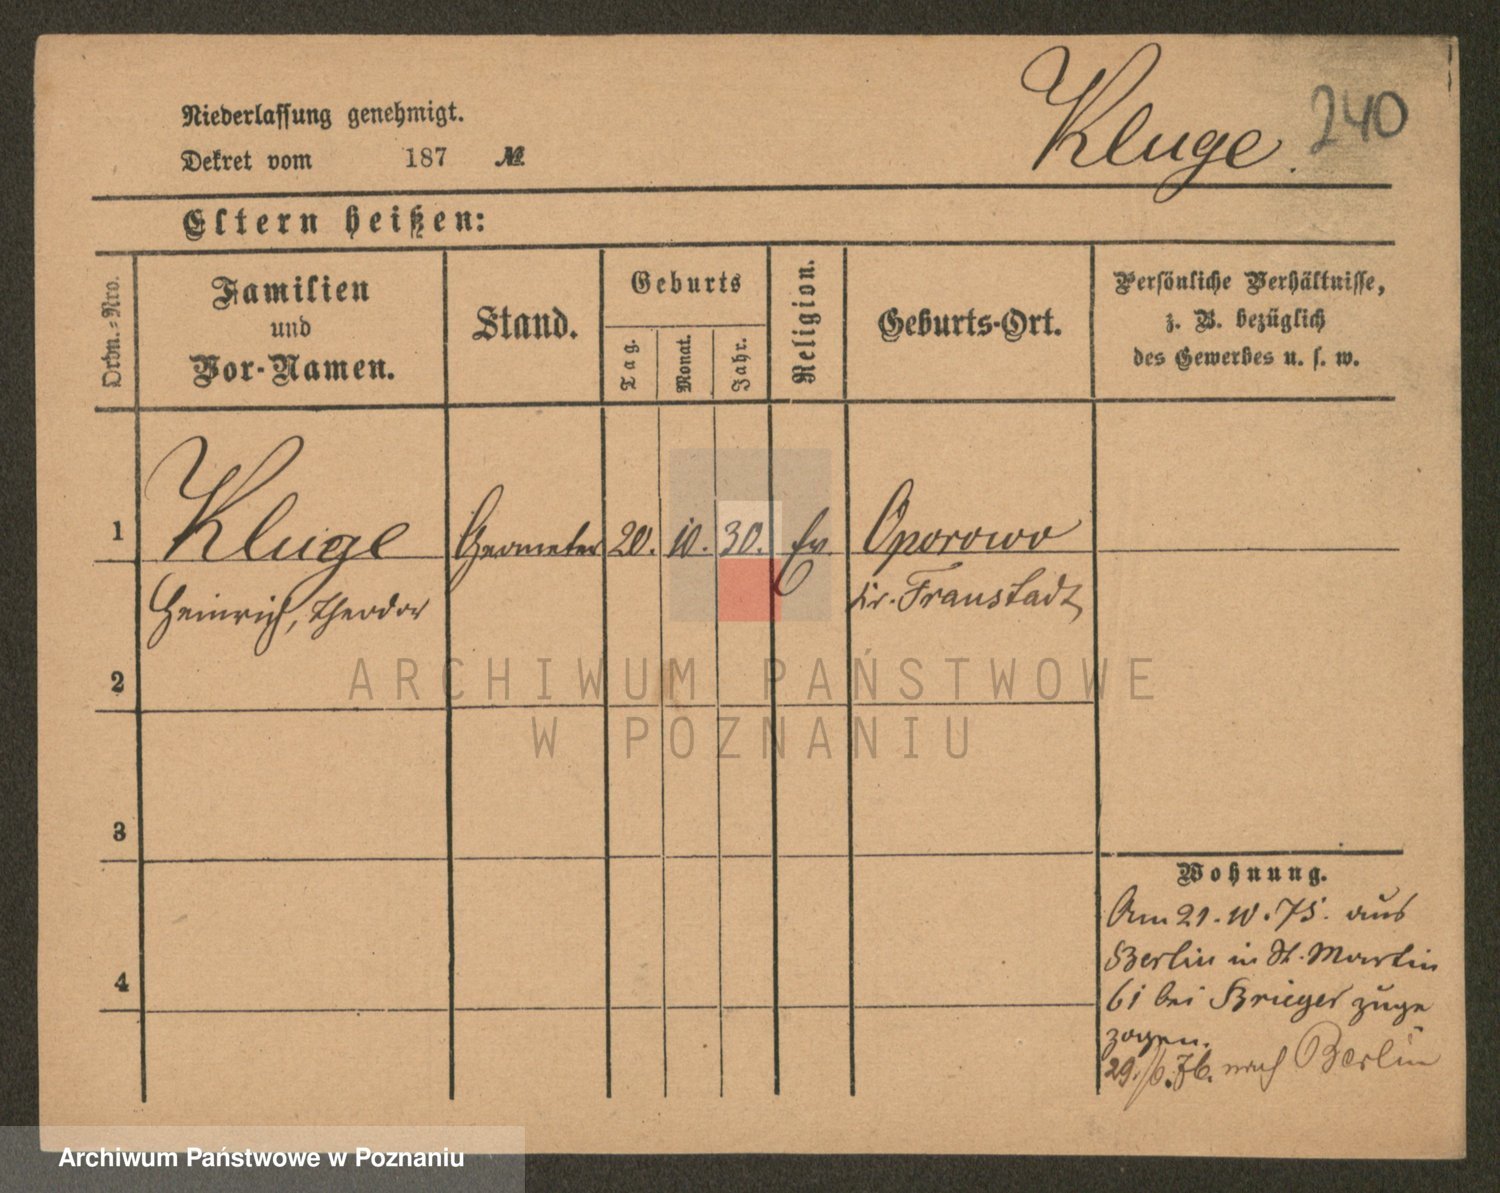 Niederlassung genehmigt.
Dekret vom 187 №
Kluge.
240
Eltern heißen:
Ordn.-Nro.
Familien
und
Vor-Namen.
Stand.
Geburts
Tag.
Monat.
Jahr.
Religion.
Geburts-Ort.
Persönliche Verhältnisse,
z. B. bezüglich
des Gewerbes u. s. w.
1 Kluge Geometer 20. 10. 30. Ev. Oporowo
Heinrich, Theodor Kr. Fraustadt
2
3
4
Wohnung.
Am 21.10.75. aus
Berlin in St. Martin
61 bei Krieger zuge
zogen.
29./6.76. nach Berlin
ARCHIWUM PAŃSTWOWE
W POZNANIU
Archiwum Państwowe w Poznaniu